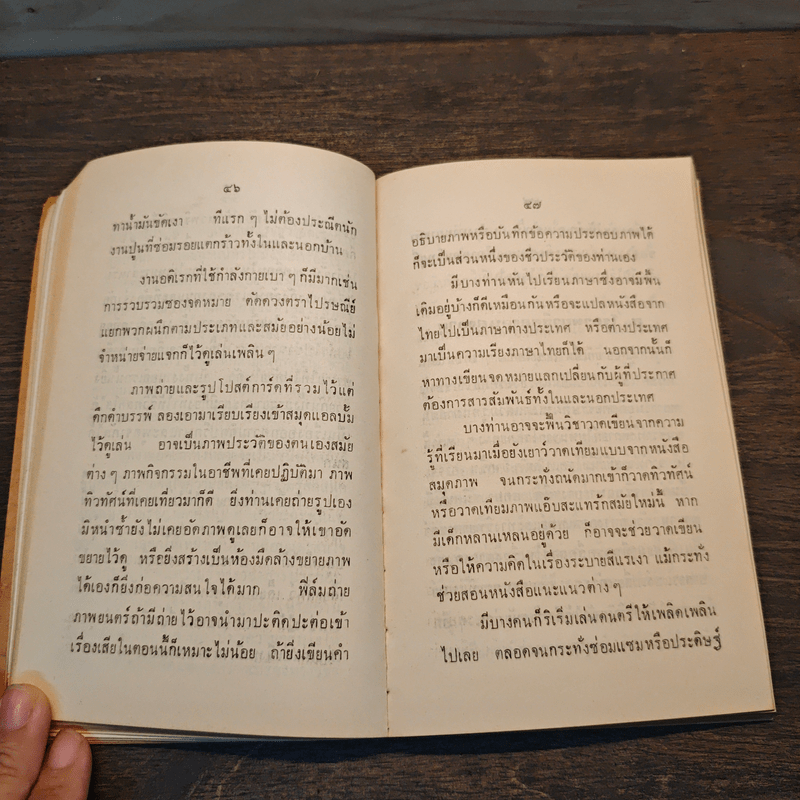 ๔๖
ทาน้ำมันขัดเงา ทีแรก ๆ ไม่ต้องประณีตนัก
งานปูนที่ซ่อมรอยแตกร้าวทั้งในและนอกบ้าน
งานอดิเรกที่ใช้กำลังกายเบา ๆ ก็มีมากเช่น
การรวบรวมซองจดหมาย ตัดดวงตราไปรษณีย์
แยกพวกผนึกตามประเภทและสมัยอย่างน้อยไม่
จำหน่ายจ่ายแจกก็ไว้ดูเล่นเพลิน ๆ
ภาพถ่ายและรูปโปสต์การ์ดที่รวมไว้แต่
ดึกดำบรรพ์ ลองเอามาเรียบเรียงเข้าสมุดแอลบั้ม
ไว้ดูเล่น อาจเป็นภาพประวัติของตนเองสมัย
ต่าง ๆ ภาพกิจกรรมในอาชีพที่เคยปฏิบัติมา ภาพ
ทิวทัศน์ที่เคยเที่ยวมาก็ดี ยิ่งท่านเคยถ่ายรูปเอง
มิหนำซ้ำยังไม่เคยอัดภาพดูเลยก็อาจให้เขาอัด
ขยายไว้ดู หรือยิ่งสร้างเป็นห้องมืดล้างขยายภาพ
ได้เองก็ยิ่งก่อความสนใจได้มาก ฟิล์มถ่าย
ภาพยนตร์ถ้ามีถ่ายไว้อาจนำมาปะติดปะต่อเข้า
เรื่องเสียในตอนนี้ก็เหมาะไม่น้อย ถ้ายิ่งเขียนคำ
๔๗
อธิบายภาพหรือบันทึกข้อความประกอบภาพได้
ก็จะเป็นส่วนหนึ่งของชีวประวัติของท่านเอง
มีบางท่านหันไปเรียนภาษาซึ่งอาจมีพื้น
เดิมอยู่บ้างก็ดีเหมือนกันหรือจะแปลหนังสือจาก
ไทยไปเป็นภาษาต่างประเทศ หรือต่างประเทศ
มาเป็นความเรียงภาษาไทยก็ได้ นอกจากนั้นก็
หาทางเขียนจดหมายแลกเปลี่ยนกับผู้ที่ประกาศ
ต้องการสารสัมพันธ์ทั้งในและนอกประเทศ
บางท่านอาจจะฟื้นวิชาวาดเขียนจากความ
รู้ที่เรียนมาเมื่อยังเยาว์วาดเทียมแบบจากหนังสือ
สมุดภาพ จนกระทั่งถนัดมากเข้าก็วาดทิวทัศน์
หรือวาดเทียมภาพแอ๊บสแทร้กสมัยใหม่นี้ หาก
มีเด็กหลานเหลนอยู่ด้วย ก็อาจจะช่วยวาดเขียน
หรือให้ความคิดในเรื่องระบายสีแรเงา แม้กระทั่ง
ช่วยสอนหนังสือแนะแนวต่าง ๆ
มีบางคนก็ริเริ่มเล่นดนตรีให้เพลิดเพลิน
ไปเลย ตลอดจนกระทั่งซ่อมแซมหรือประดิษฐ์